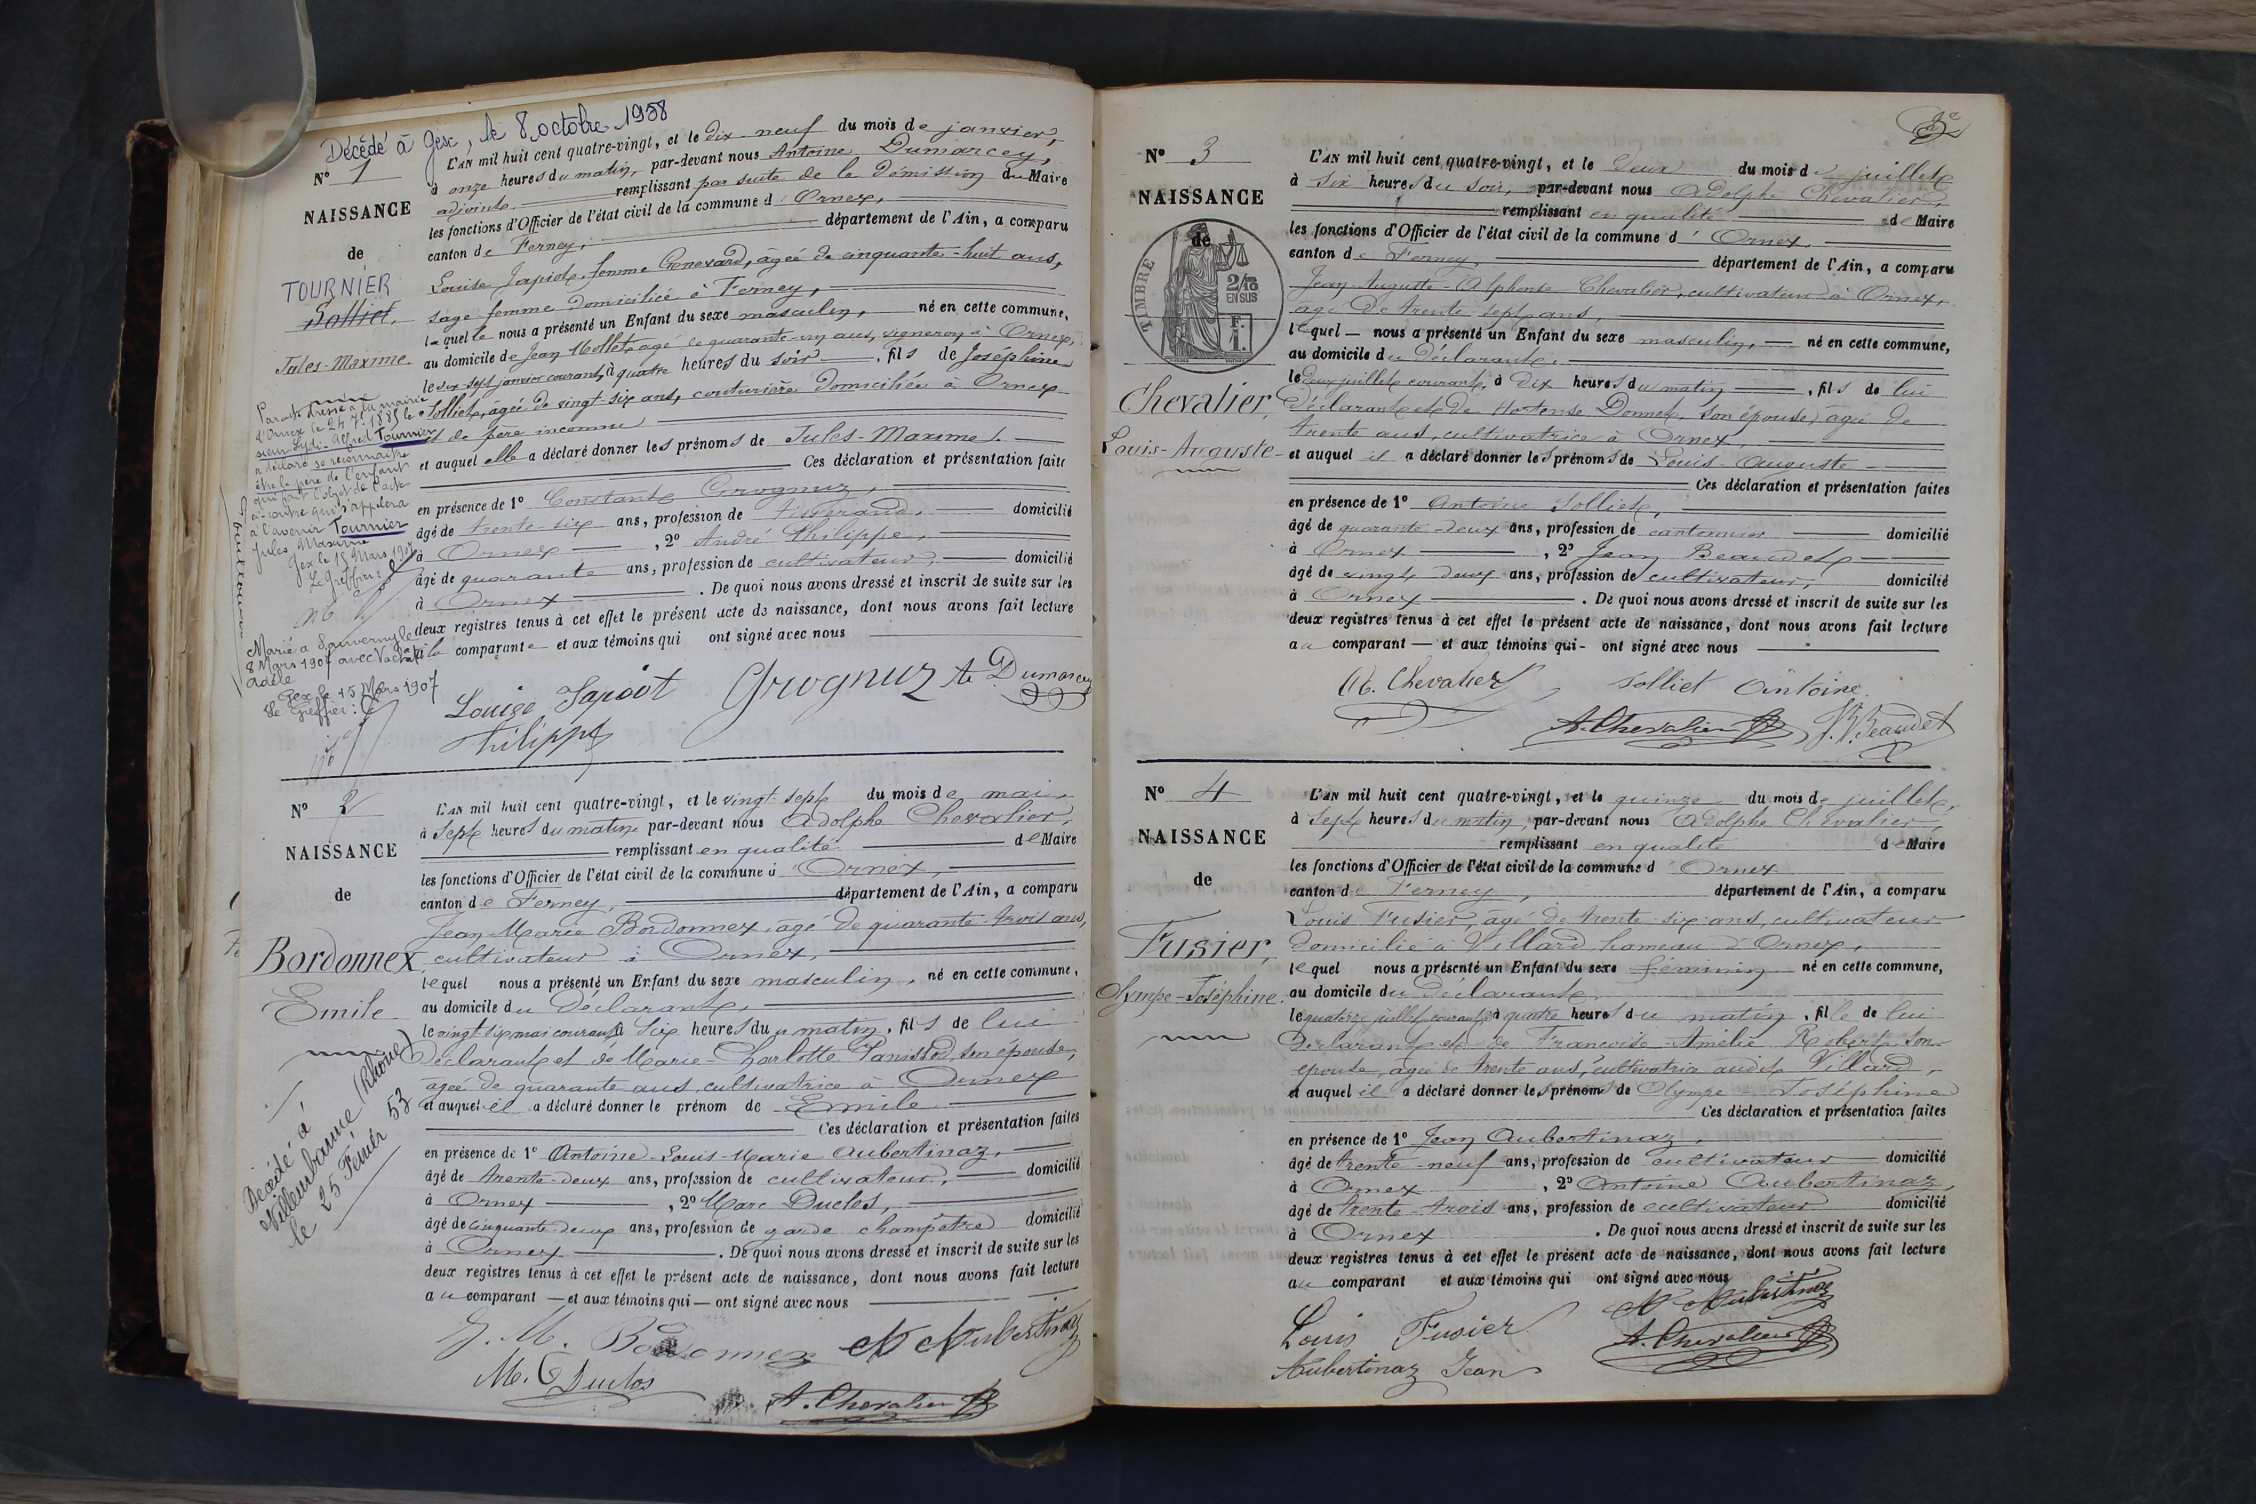 Décédé à Gex, le 8 octobre 1958
N° 1
NAISSANCE
de
TOURNIER
Solliet,
Jules-Maxime
L'AN mil huit cent quatre-vingt, et le dix-neuf du mois de janvier,
à onze heures du matin, par-devant nous Antoine Dumarcey,
adjoint remplissant par suite de la démission du Maire
les fonctions d'Officier de l'état civil de la commune d'Ornex,
canton de Ferney, département de l'Ain, a comparu
Louise Japiot femme Genevard, âgée de cinquante-huit ans,
sage femme domiciliée à Ferney,
laquelle nous a présenté un Enfant du sexe masculin, né en cette commune,
au domicile de Jean Mollet, agé de quarante-un ans, vigneron à Ornex,
le dix-sept janvier courant, à quatre heures du soir, fils de Joséphine
Solliet, âgée de vingt-six ans, couturière domiciliée à Ornex
et de père inconnu
et auquel elle a déclaré donner les prénoms de Jules-Maxime.
Ces déclaration et présentation faites
en présence de 1° Constant Grognuz,
âgé de trente-six ans, profession de tisserand, domicilié
à Ornex, 2° André Philippe,
âgé de quarante ans, profession de cultivateur, domicilié
à Ornex. De quoi nous avons dressé et inscrit de suite sur les
deux registres tenus à cet effet le présent acte de naissance, dont nous avons fait lecture
à la comparante et aux témoins qui ont signé avec nous
Louise Japiot Grognuz A Dumarcey
Philippe
Par acte dressé à la mairie
d'Ornex le 24 7bre 1885 le
sieur Alfred Tournier
a déclaré se reconnaître
être le père de l'enfant
qui fait l'objet de l'acte
ci-contre qui s'appelera
à l'avenir Tournier
Jules, Maxime
Gex le 15 Mars 1907
Le Greffier:
Marié à Sauverny le
8 Mars 1907 avec
Adèle
Gex le 15 Mars 1907
Le Greffier:
N° 2
NAISSANCE
de
Bordonnex
Emile
L'AN mil huit cent quatre-vingt, et le vingt-sept du mois de mai,
à sept heures du matin par-devant nous Adolphe Chevalier,
remplissant en qualité de Maire
les fonctions d'Officier de l'état civil de la commune d'Ornex,
canton de Ferney, département de l'Ain, a comparu
Jean-Marie Bordonnex, âgé de quarante-trois ans,
cultivateur à Ornex,
lequel nous a présenté un Enfant du sexe masculin, né en cette commune,
au domicile du Déclarant,
le vingt-six mai courant, à six heures du matin, fils de lui
Déclarant et de Marie-Charlotte Panissod, son épouse,
agée de quarante ans, cultivatrice à Ornex
et auquel il a déclaré donner le prénom de Emile
Ces déclaration et présentation faites
en présence de 1° Antoine-Louis-Marie Aubertinaz,
âgé de trente-deux ans, profession de cultivateur, domicilié
à Ornex, 2° Marc Duclos,
âgé de cinquante-deux ans, profession de garde champêtre domicilié
à Ornex. De quoi nous avons dressé et inscrit de suite sur les
deux registres tenus à cet effet le présent acte de naissance, dont nous avons fait lecture
au comparant et aux témoins qui ont signé avec nous
J. M. Bordonnex A Aubertinaz
M. Duclos
A. Chevalier
Décédé à
Villeurbanne (Rhône)
le 25 Février 53
N° 3
NAISSANCE
de
TIMBRE
2/10
EN SUS
F.
1.
Chevalier,
Louis-Auguste
L'AN mil huit cent quatre-vingt, et le deux du mois de juillet
à six heures du soir, par-devant nous Adolphe Chevalier,
remplissant en qualité de Maire
les fonctions d'Officier de l'état civil de la commune d'Ornex
canton de Ferney, département de l'Ain, a comparu
Jean-Auguste-Alphonse Chevalier, cultivateur à Ornex,
agé de trente-sept ans,
lequel nous a présenté un Enfant du sexe masculin, né en cette commune,
au domicile du déclarant,
le deux juillet courant, à dix heures du matin, fils de lui
déclarant et de Hortense Donnet, son épouse, agée de
trente ans, cultivatrice à Ornex
et auquel il a déclaré donner les prénoms de Louis Auguste
Ces déclaration et présentation faites
en présence de 1° Antoine Solliet,
âgé de quarante-deux ans, profession de cantonnier domicilié
à Ornex, 2° Jean Beaudet
âgé de vingt deux ans, profession de cultivateur, domicilié
à Ornex. De quoi nous avons dressé et inscrit de suite sur les
deux registres tenus à cet effet le présent acte de naissance, dont nous avons fait lecture
au comparant et aux témoins qui ont signé avec nous
Chevalier Solliet Antoine
A. Chevalier Beaudet
N° 4
NAISSANCE
de
Fusier,
Olympe-Joséphine
L'AN mil huit cent quatre-vingt, et le quinze du mois de juillet,
à sept heures du matin, par-devant nous Adolphe Chevalier,
remplissant en qualité de Maire
les fonctions d'Officier de l'état civil de la commune d'Ornex
canton de Ferney, département de l'Ain, a comparu
Louis Fusier, agé de trente-six ans, cultivateur
domicilié à Villard hameau d'Ornex,
lequel nous a présenté un Enfant du sexe féminin né en cette commune,
au domicile du déclarant,
le quatorze juillet courant, à quatre heures du matin, fille de lui
Déclarant et de Françoise-Amélie Robert, son
épouse, agée de trente ans, cultivatrice audit Villard,
et auquel il a déclaré donner les prénoms de Olympe Joséphine
Ces déclaration et présentation faites
en présence de 1° Jean Aubertinaz,
âgé de trente-neuf ans, profession de cultivateur domicilié
à Ornex, 2° Antoine Aubertinaz,
âgé de trente-trois ans, profession de cultivateur domicilié
à Ornex. De quoi nous avons dressé et inscrit de suite sur les
deux registres tenus à cet effet le présent acte de naissance, dont nous avons fait lecture
au comparant et aux témoins qui ont signé avec nous
Louis Fusier A Aubertinaz
Aubertinaz Jean A. Chevalier